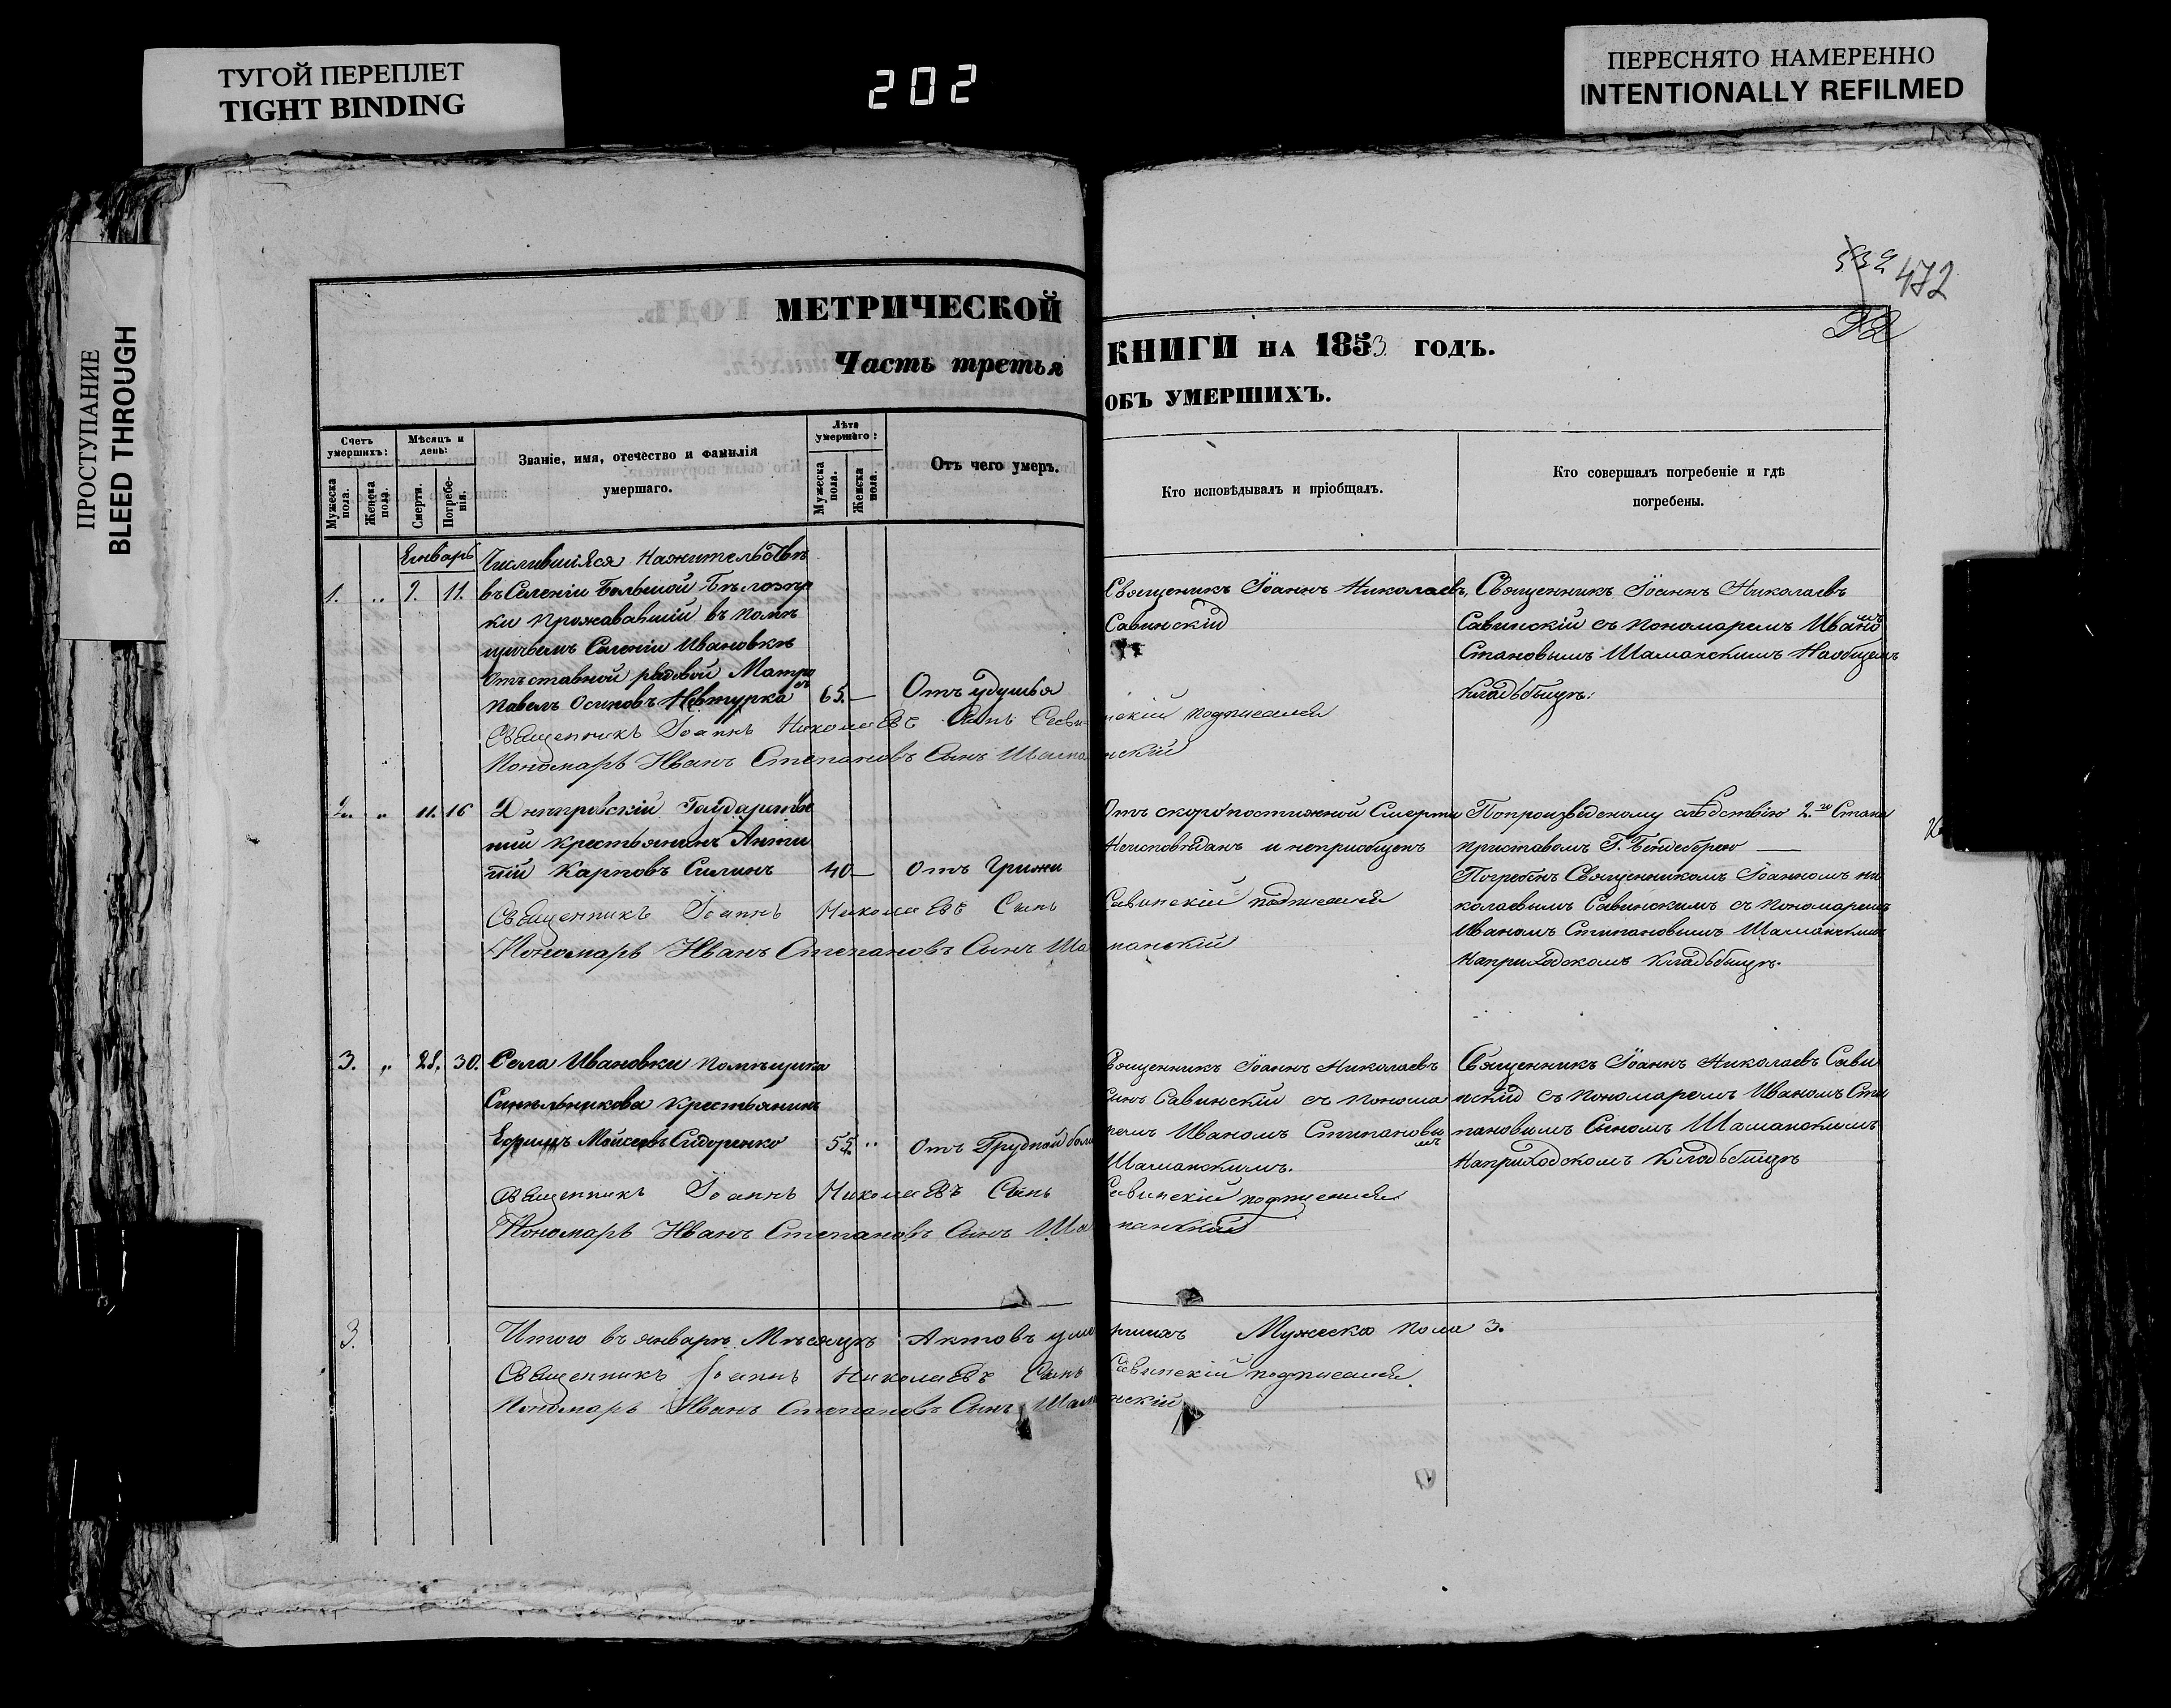 ТУГОЙ ПЕРЕПЛЕТ
TIGHT BINDING
202
ПЕРЕСНЯТО НАМЕРЕННО
INTENTIONALLY REFILMED
ПРОСТУПАНИЕ
BLEED THROUGH
472
МЕТРИЧЕСКОЙ КНИГИ НА 1853 ГОДЪ.
Часть третья ОБЪ УМЕРШИХЪ.
Счетъ умершихъ:
Мужеска пола.
Женска пола.
Мѣсяцъ и день:
Смерти.
Погребенія.
Званіе, имя, отечество и фамилія
умершаго.
Лѣта умершаго:
Мужеска пола.
Женска пола.
Отъ чего умеръ.
Кто исповѣдывалъ и пріобщалъ.
Кто совершалъ погребеніе и гдѣ
погребены.
Январь
1. „ 9. 11.
Числившійся Нажительствѣ
въ Селеніи Большой Бѣлозер
ки Прожававшій въ помѣ
щичьемъ Селеніи Ивановкѣ
Отъставной рядовой Матро
Павелъ Осиповъ
65.— Отъ удушья
Священикъ Іоаннъ Николаевъ,
Савинскій
Священникъ Іоаннъ Николаевъ
Савинскій съ пономаремъ Ивано
Шаманскимъ Наобщемъ
Кладьбищѣ.
Священникъ Іоаннъ Николаевъ Сынъ Савинскій подписался
Пономарь Иванъ Степановъ Сынъ Шаманскій
2. „ 11. 16
Днѣпровскій
крестьянинъ Анти
пій Карповъ Силинъ
40— Отъ Грижи
Отъ скоропостижной Смерти
Неисповѣданъ и непріобщенъ
Попроизведеному слѣдствію 2.го Стана
приставомъ Г.
Погребенъ Священникомъ Іоанномъ Ни
колаевымъ Савинскимъ съ пономаремъ
Иваномъ Степановымъ Шаманскимъ
Наприходскомъ Кладьбищѣ.
Священникъ Іоаннъ Николаевъ Сынъ Савинскій подписался
Пономарь Иванъ Степановъ Сынъ Шаманскій
3. „ 28. 30.
Села Ивановки помѣщика
Синельникова Крестьянинъ
Сидоренко
55. „ Отъ Грудной
Священникъ Іоаннъ Николаевъ
Сынъ Савинскій съ понома
ремъ Иваномъ Степановы
мъ
Шаманскимъ.
Священникъ Іоаннъ Николаевъ Сави
нскій съ пономаремъ Иваномъ Сте
пановымъ Сыномъ Шаманскимъ
Наприходскомъ Кладьбищѣ
Священникъ Іоаннъ Николаевъ Сынъ Савинскій подписался
Пономарь Иванъ Степановъ Сынъ Шаманскій
3.
Итого въ январѣ Мѣсяцѣ Актовъ умершихъ Мужеска пола 3.
Священникъ Іоаннъ Николаевъ Сынъ Савинскій подписался.
Пономарь Иванъ Степановъ Сынъ Шаманскій